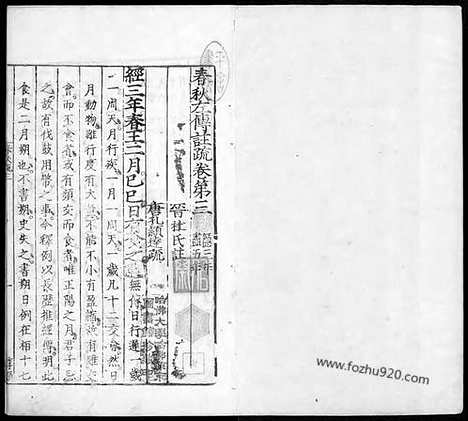 春秋左傳註疏卷第三
隱三年
盡五年
晉杜氏註
唐孔穎達疏
經三年春王二月己巳日有食之
無傳日行遲一歲
一周天月行疾一月一周天一歲凡十二交會然日
月動物雖行度有大量不能不小有盈縮故有雖交
會而不食者或有頻交而食者唯正陽之月君子忌
之故有伐鼓用幣之事今釋例以長歷推經傳明此
食是二月朔也不書朔史失之書朔日例在桓十七
哈佛大學
https://www.fozhu920.com/